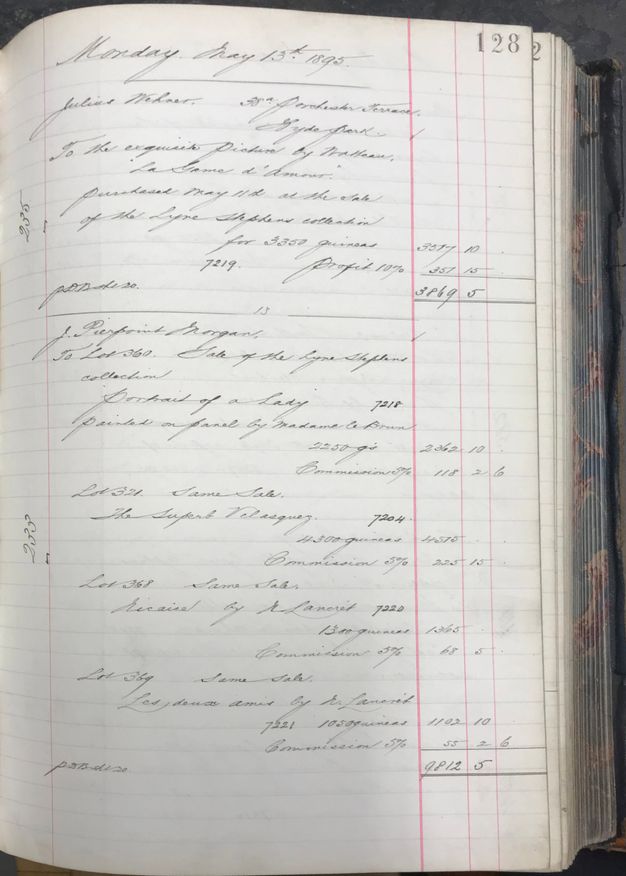 128
Monday May 13th 1895.
Julius Wehner. 38a Porchester Terrace,
Hyde Park.
To the exquisite Picture by Watteau.
"La Game d'Amour".
purchased May 11th at the Sale
of the Lyne Stephens collection
for 3350 guineas 3517 10 .
7219. Profit 10% 351 15 .
3869 5
13
J. Pierpoint Morgan.
To Lot 360. Sale of the Lyne Stephens
collection
Portrait of a Lady 7218
painted on panel by Madame le Brun
2250 gs 2362 10 .
Commission 5% 118 2 6
Lot 321. Same Sale.
The Superb Velasquez. 7204.
4300 guineas 4515 . .
Commission 5% 225 15 .
Lot 368 Same Sale.
Nicaise by N. Lancret 7220
1300 guineas 1365 . .
Commission 5% 68 5 .
Lot 369 Same Sale.
Les deux amis by N. Lancret
7221 1050 guineas 1102 10
Commission 5% 55 2 6
9812 5